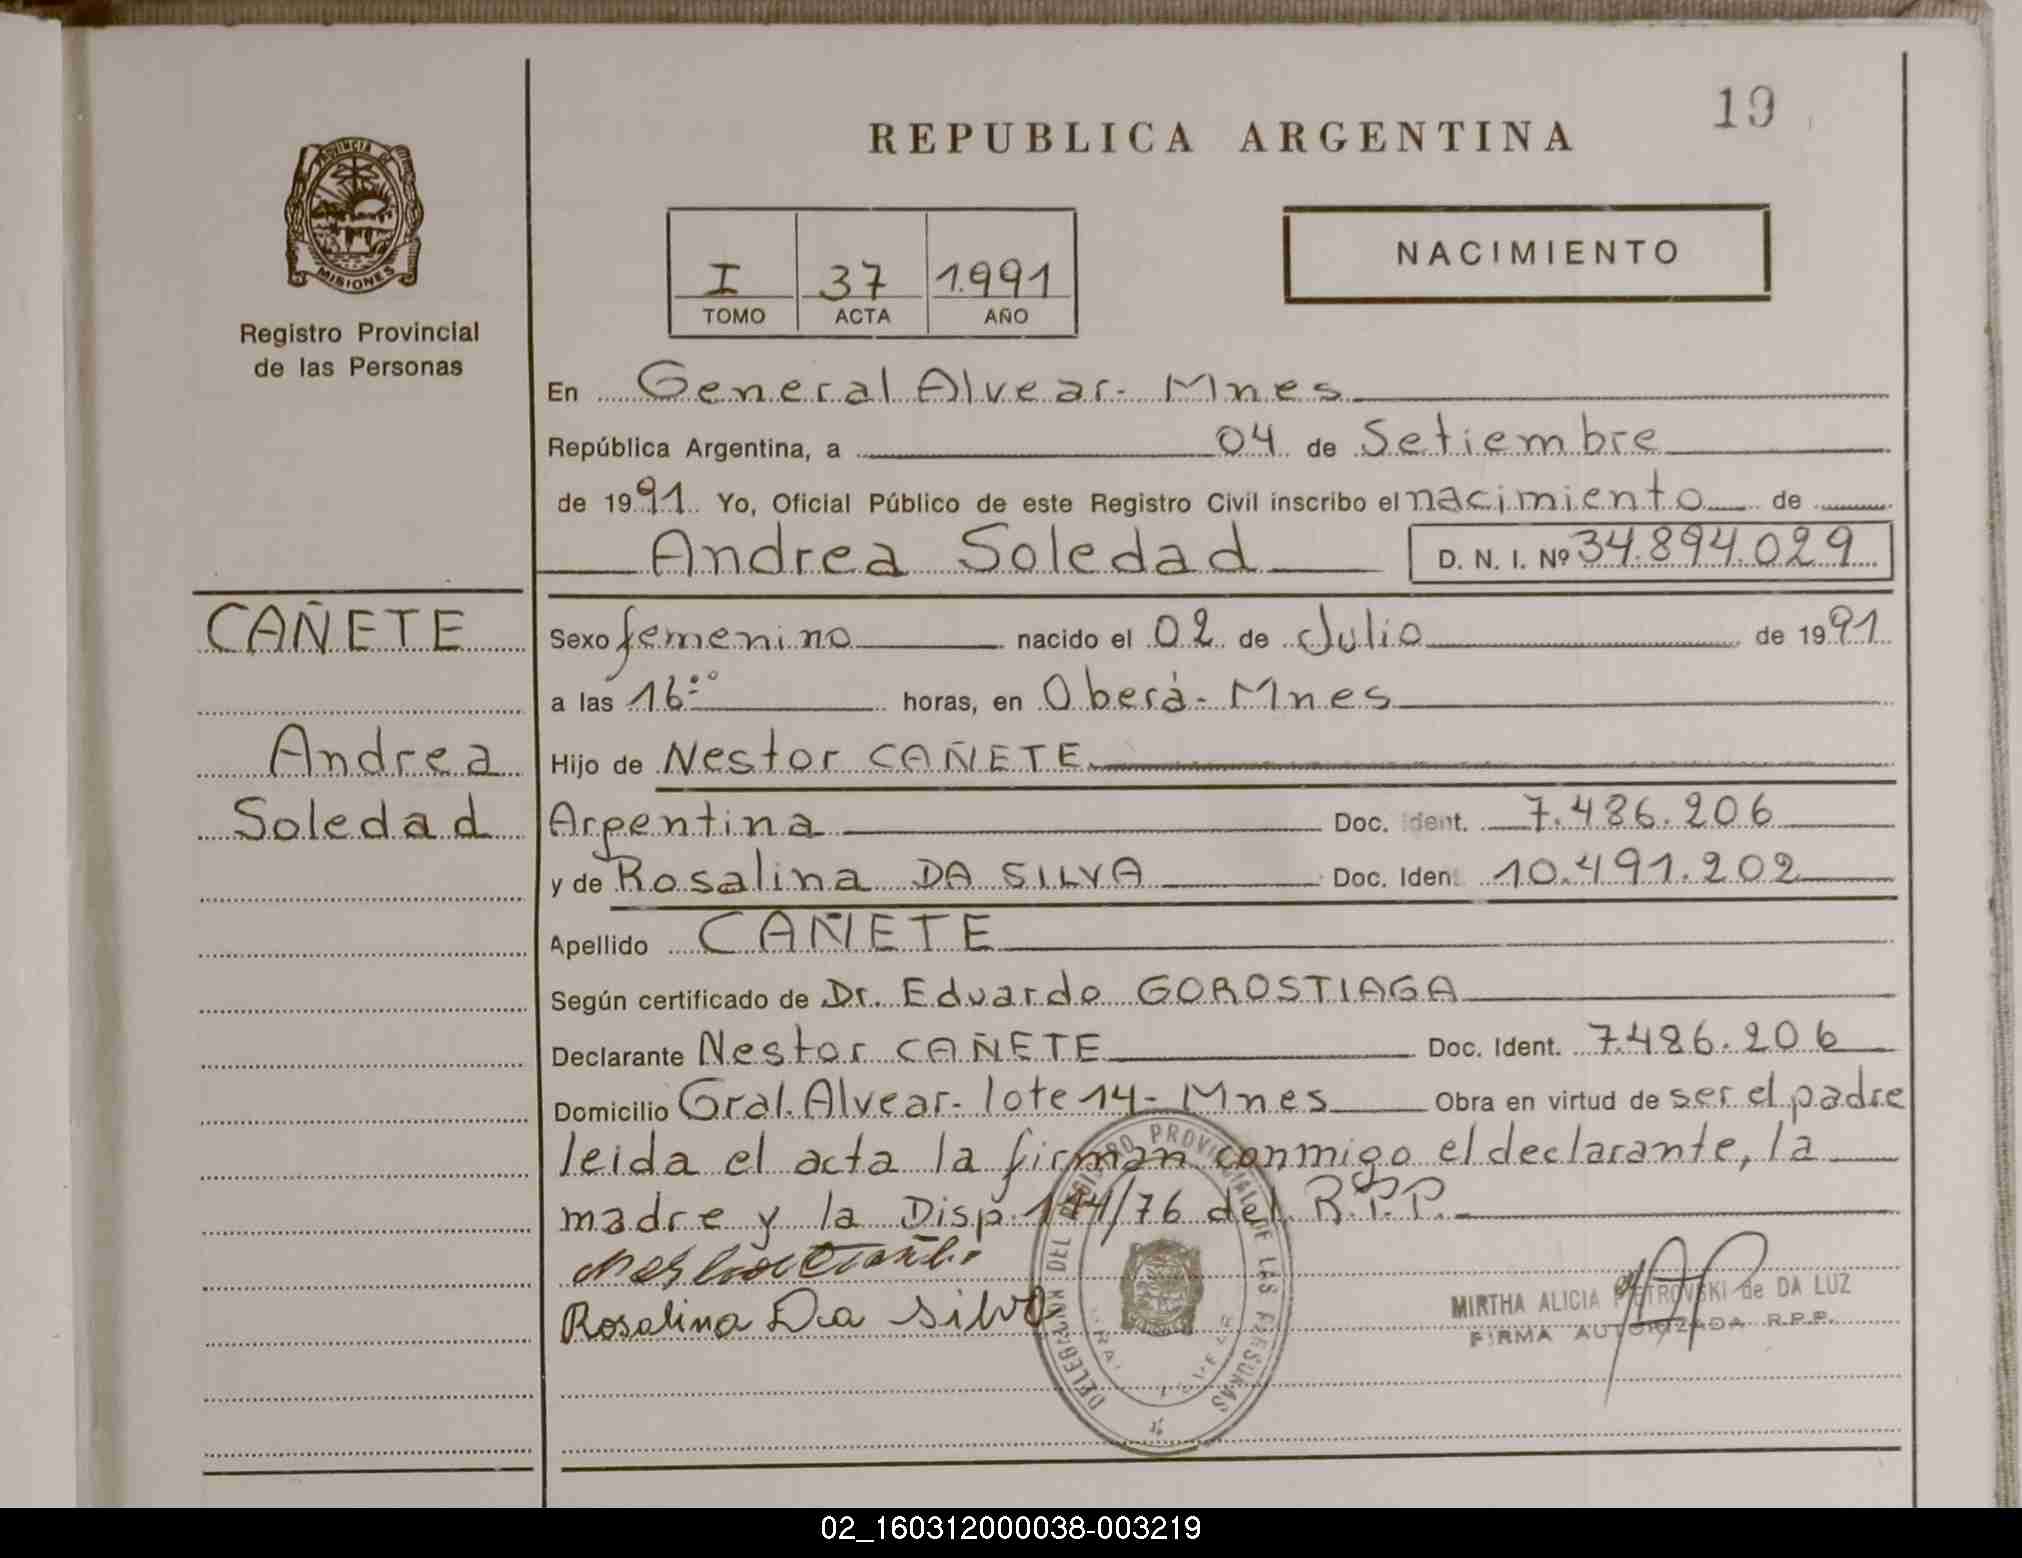 19
REPUBLICA ARGENTINA
PROVINCIA DE
MISIONES
Registro Provincial
de las Personas
NACIMIENTO
I 37 1.991
TOMO ACTA AÑO
En General Alvear- Mnes
República Argentina, a 04 de Setiembre
de 1991 Yo, Oficial Público de este Registro Civil inscribo el nacimiento de
Andrea Soledad D. N. I. Nº 34.894.029
CAÑETE
Andrea
Soledad
Sexo femenino nacido el 02 de Julio de 1991
a las 16:00 horas, en Oberá- Mnes
Hijo de Nestor CAÑETE
Argentina Doc. Ident. 7.486.206
y de Rosalina DA SILVA Doc. Ident 10.491.202
Apellido CAÑETE
Según certificado de Dr. Eduardo GOROSTIAGA
Declarante Nestor CAÑETE Doc. Ident. 7.486.206
Domicilio Gral. Alvear- lote 14- Mnes Obra en virtud de ser el padre
leida el acta la firman conmigo el declarante, la
madre y la Disp. 144/76 del R.P.P.
Rosalina Da Silva
DEL REGISTRO PROVINCIAL DE LAS PERSONAS
MIRTHA ALICIA PIETROVSKI de DA LUZ
FIRMA AUTORIZADA R.P.P.
02_160312000038-003219